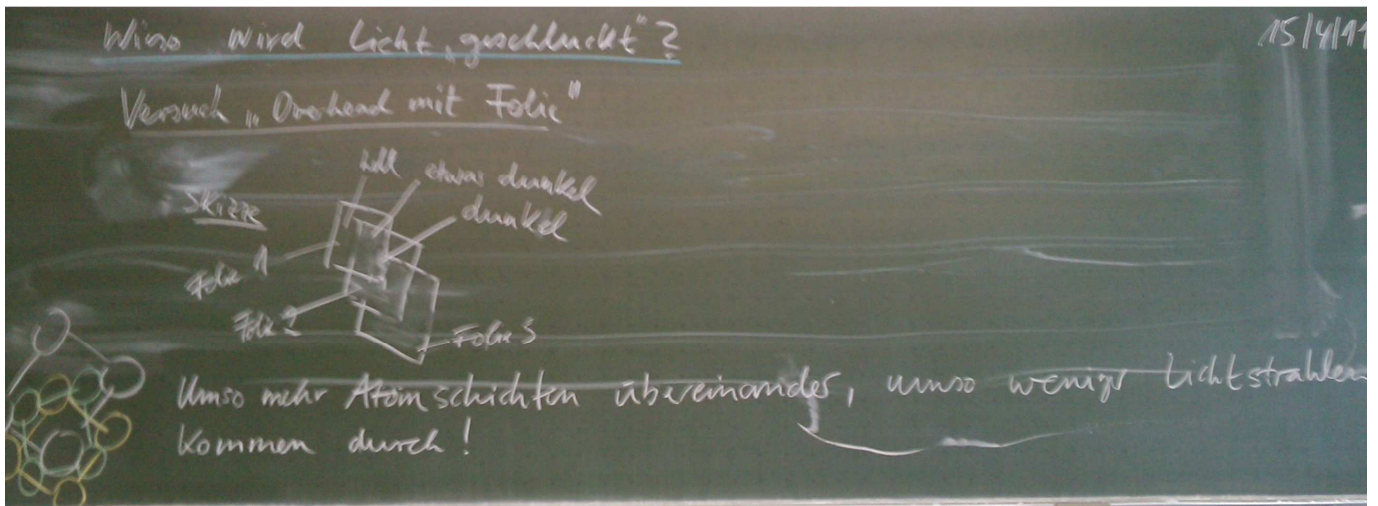 Wieso wird Licht „geschluckt"?
15/4/11
Versuch „Overhead mit Folie"
Skizze
hell
etwas dunkel
dunkel
Folie 1
Folie 2
Folie 3
Umso mehr Atomschichten übereinander, umso weniger Lichtstrahlen
kommen durch!